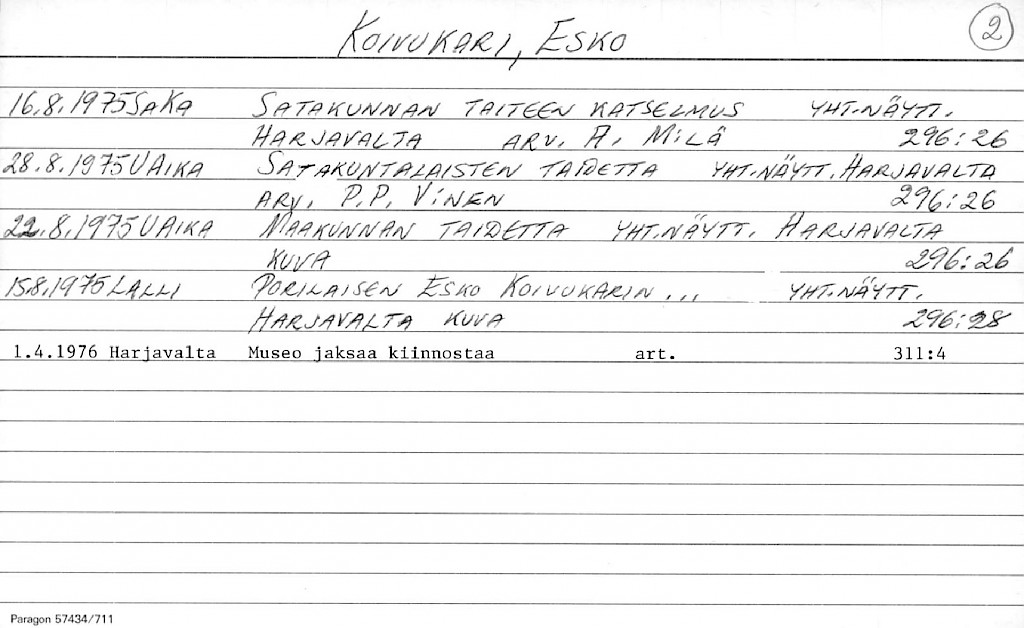 KOIVUKARI, ESKO 2
16.8.1975 SaKa SATAKUNNAN TAITEEN KATSELMUS YHT.NÄYTT.
HARJAVALTA ARV. A. MiLÄ 296:26
28.8.1975 UAIKA SATAKUNTALAISTEN TAIDETTA YHT.NÄYTT. HARJAVALTA
ARV. P.P. ViNEN 296:26
22.8.1975 UAIKA MAAKUNNAN TAIDETTA YHT.NÄYTT. HARJAVALTA
KUVA 296:26
15.8.1975 LALLI PORILAISEN ESKO KOIVUKARIN ... YHT.NÄYTT.
HARJAVALTA KUVA 296:28
1.4.1976 Harjavalta Museo jaksaa kiinnostaa art. 311:4
Paragon 57434/711